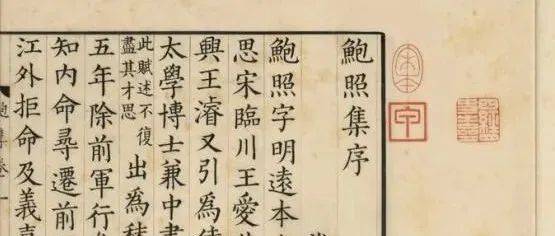 鮑照集序
鮑照字明遠本
思宋臨川王愛
興王濬又引為
太學博士兼中書
此賦述不復
盡其才思
出為
五年除前軍行
知內命尋遷前
江外拒命及義
宋本
甲